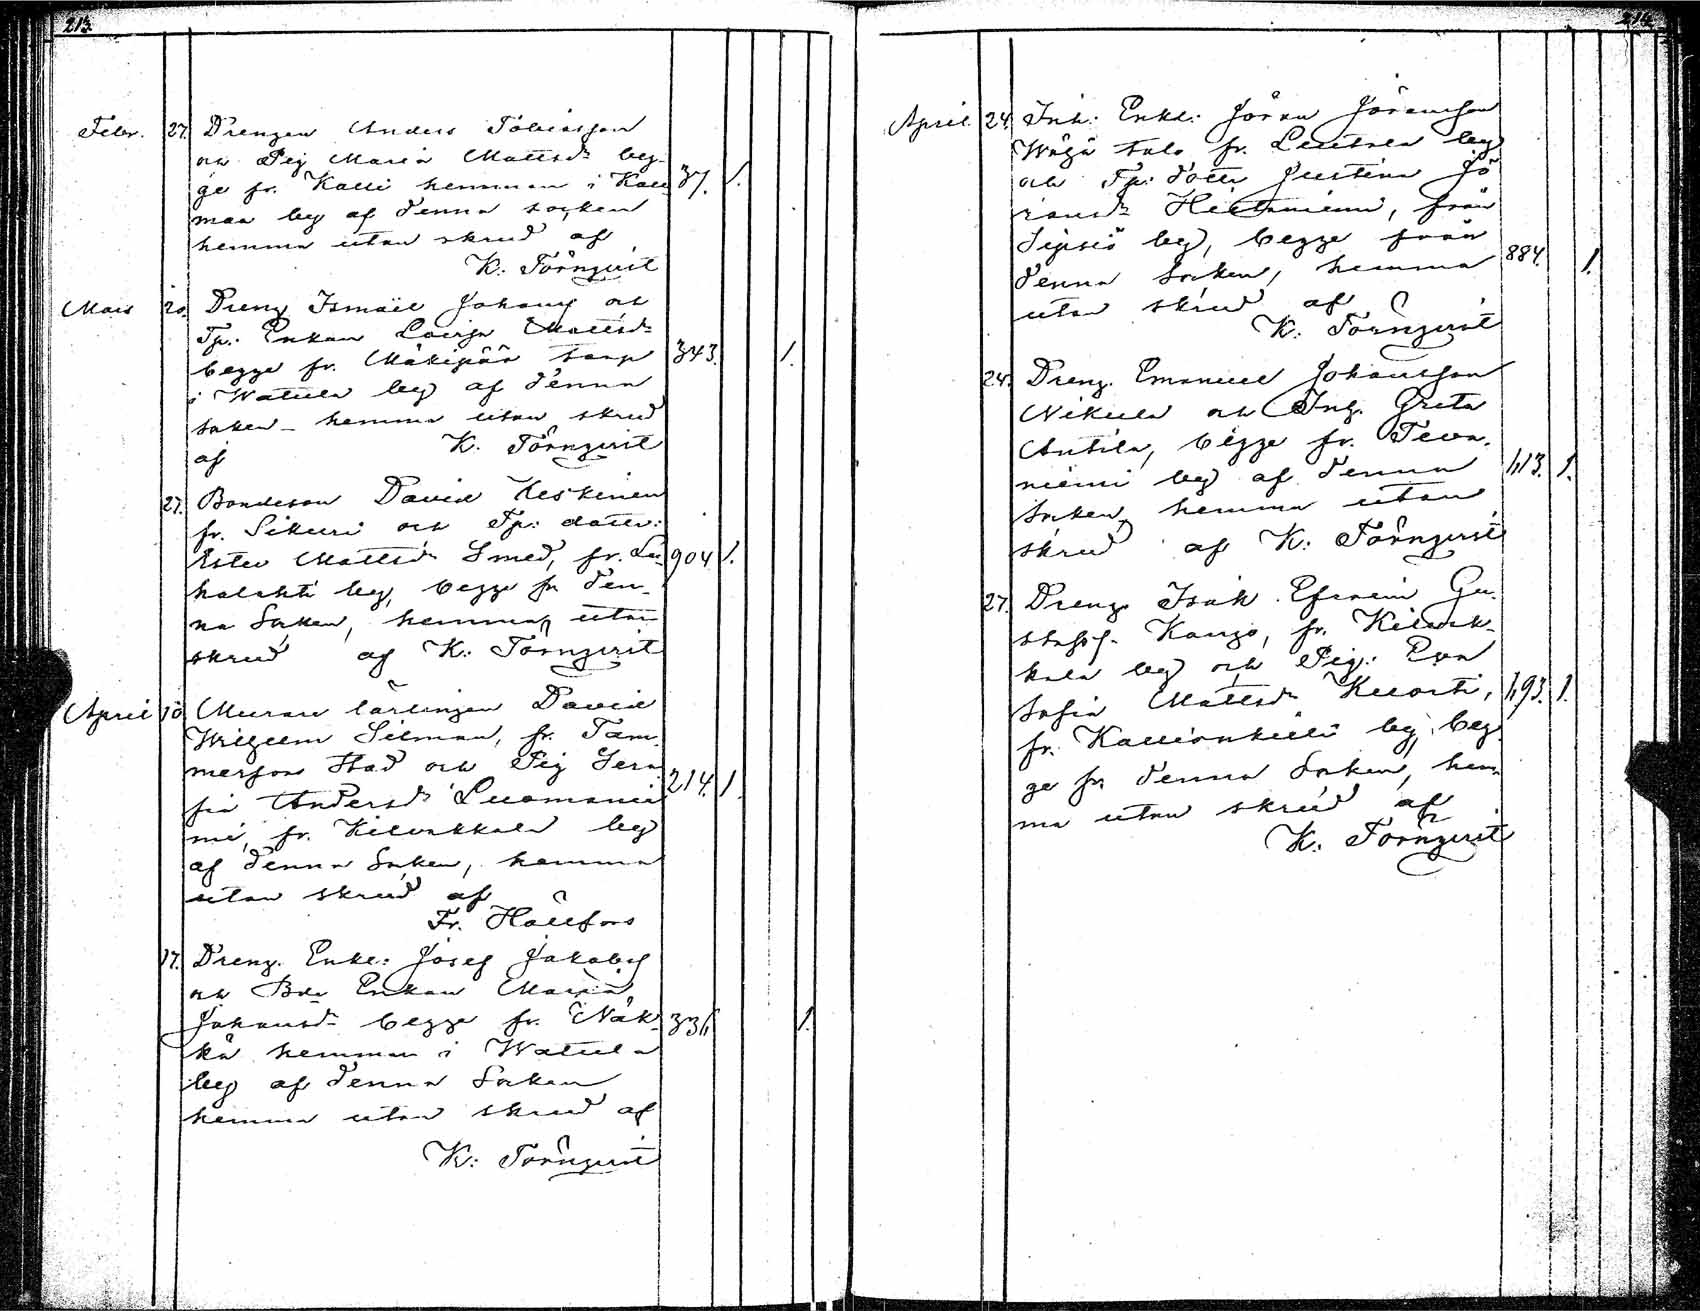 213.
Febr. 27. Drengen Anders Tobiasson
och Pig Maria Mattsdr beg-
ge fr. Kalli hemman i Kall 37. 1.
maa by af denna socken
hemma utan skrud af
K: Törnqvist
Mars 20. Dreng Ismael Johansf och
Tp. Enkan Lovisa Mattsdr
begge fr. Mäkipää torp 343. 1.
i Watula by af denna
socken – hemma utan skrud
af K. Törnqvist
27. Bondeson David Keskinen
fr. Sikuri och Tp: dottr:
Ester Mattsd Smed, fr. Lu- 904 1.
halahti by, begge fr den-
na Socken, hemma, utan
skrud af K: Törnqvist
April 10 Murare lärlingen David
Wilhelm Silman, fr. Tam-
merfors Stad och Pig Sera 214. 1.
fia Andersdr Luomanie
mi, fr. Kilvakkala by
af denna Socken, hemma
utan skrud af
Fr. Hällfors
17. Dreng. Enkl: Josef Jakobsf
och Bde Enkan Maria
Johansdr begge fr. Näk- 336 1.
kä hemman i Watula
by af denna Socken
hemma utan skrud af
K: Törnqvist
214.
April. 24. Inh: Enkl: Jöran Jöransson
fr. by
och Tp: dotter Justina Jö
ransdr Hietaniemi, från
by, begge från
denna Socken, hemma 884. 1.
utan skrud af
K: Törnqvist
24. Dreng. Emanuel Johansson
Nikula och Inh. Greta
Antila, begge fr. Teva-
niemi by af denna 413. 1.
Socken, hemma utan
skrud af K: Törnqvist
27. Dreng. Isak Efraim Gu-
stafsf. Kango, fr. Kilvak-
kala by och Pig: Eva
Sofia Mattsdr Kuorti, 493. 1.
fr. Kallionkieli by, beg-
ge fr denna Socken, hem-
ma utan skrud af
K: Törnqvist